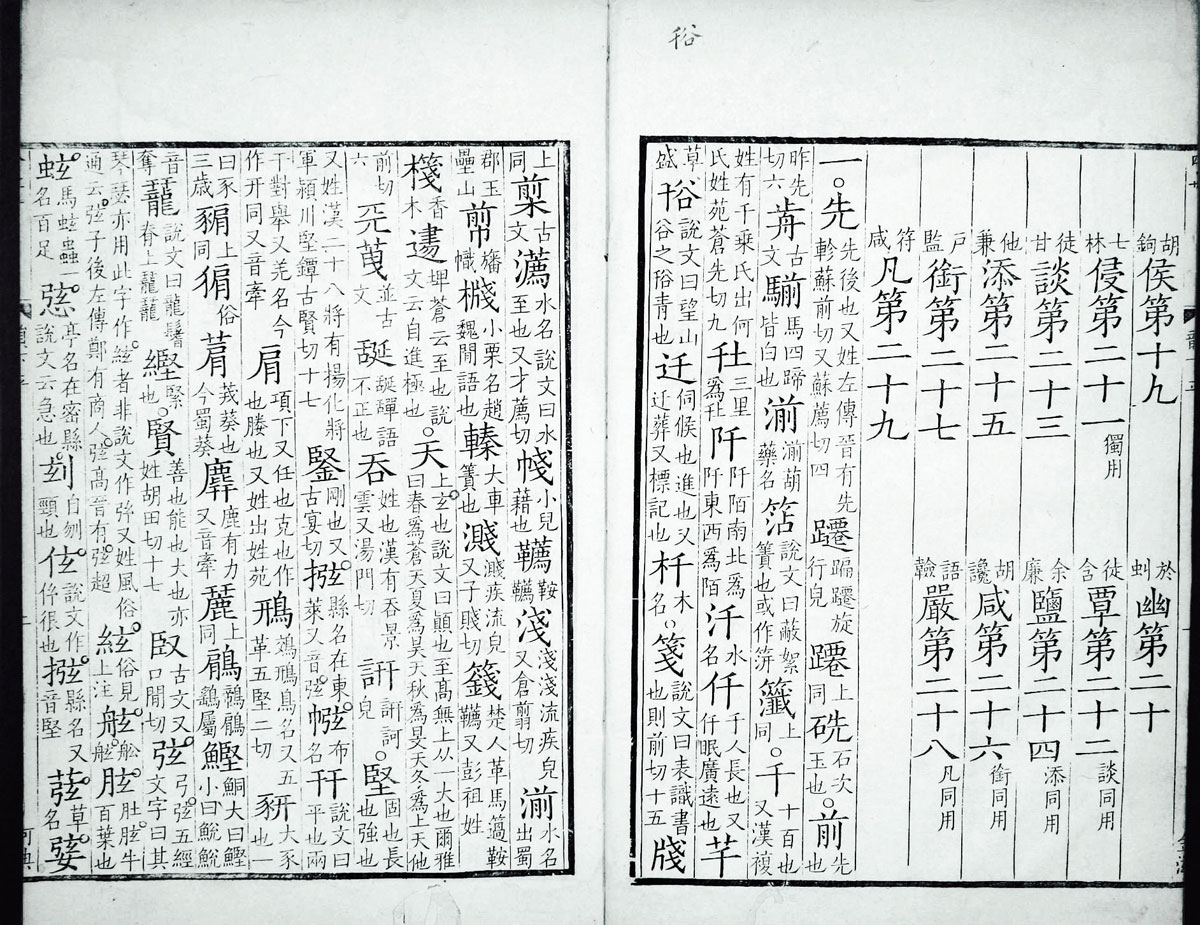 谸
胡鉤侯第十九　於虯幽第二十
七林侵第二十一獨用　徒含覃第二十二談同用
徒甘談第二十三　余廉鹽第二十四添同用
他兼添第二十五　胡讒咸第二十六銜同用
戶監銜第二十七　語䡝嚴第二十八凡同用
符咸凡第二十九
一。先先後也又姓左傳晉有先軫蘇前切又蘇薦切四躚蹁躚旋行皃蹮上同石次玉也。前先也
昨先切六歬古文騚馬四蹄皆白也湔湔葫藥名說文曰蔽絮簀也或作上同。千十百也又漢複
姓有千乘氏出何氏姓苑蒼先切九圱三里爲圱阡阡陌南北爲阡東西爲陌汘水名仟千人長也又仟眠廣遠也芊
草盛谸說文曰望山谷之谸青也迁伺候也進也又迁葬又標記也杄木名。箋說文曰表識書也則前切十五牋
上同古文水名說文曰水至也又才薦切帴小兒藉也韉鞍韉淺淺淺流疾皃又倉翦切湔水名出蜀
郡玉壘山幡幟小栗名趙魏間語也轃大車簀也濺濺疾流皃又子賤切籛楚人革馬簻鞍韉又彭祖姓
棧香木埤蒼云至也說文云自進極也。天上玄也說文曰顚也至高無上从一大也爾雅曰春爲蒼天夏爲昊天秋爲旻天冬爲上天他
前切六並古文語不正也吞姓也漢有吞景雲又湯門切訮訮訶皃。堅固也長也強也
又姓漢二十八將有揚化將軍潁川堅鐔古賢切十七鋻剛也又古宴切縣名在東萊又音弦布名幵說文曰平也兩
干對舉又羌名今作开同又音牽肩項下又任也克也作也塍也又姓出姓苑鳽鵁鳽鳥名又五革五堅二切豜大豕也一
曰豕三歲上同猏俗菺茙葵也今蜀葵麉鹿有力又音牽上同鵳鷂屬鰹鮦大曰鰹小曰鮵鮵
音奪說文曰龍鬐脊上龖龖緊也。賢善也能也大也亦姓胡田切十七臤古文又口閒切弦弓弦五經文字曰其
琴瑟亦用此字作絃者非說文作又姓風俗通云弦子後左傳鄭有商人弦高晉有弦超絃俗見上注舷舩舷胘肚胘牛百葉也
蚿馬蚿蟲一名百足亭名在密縣說文云急也自刎頸也伭說文作很也縣名又音堅草名